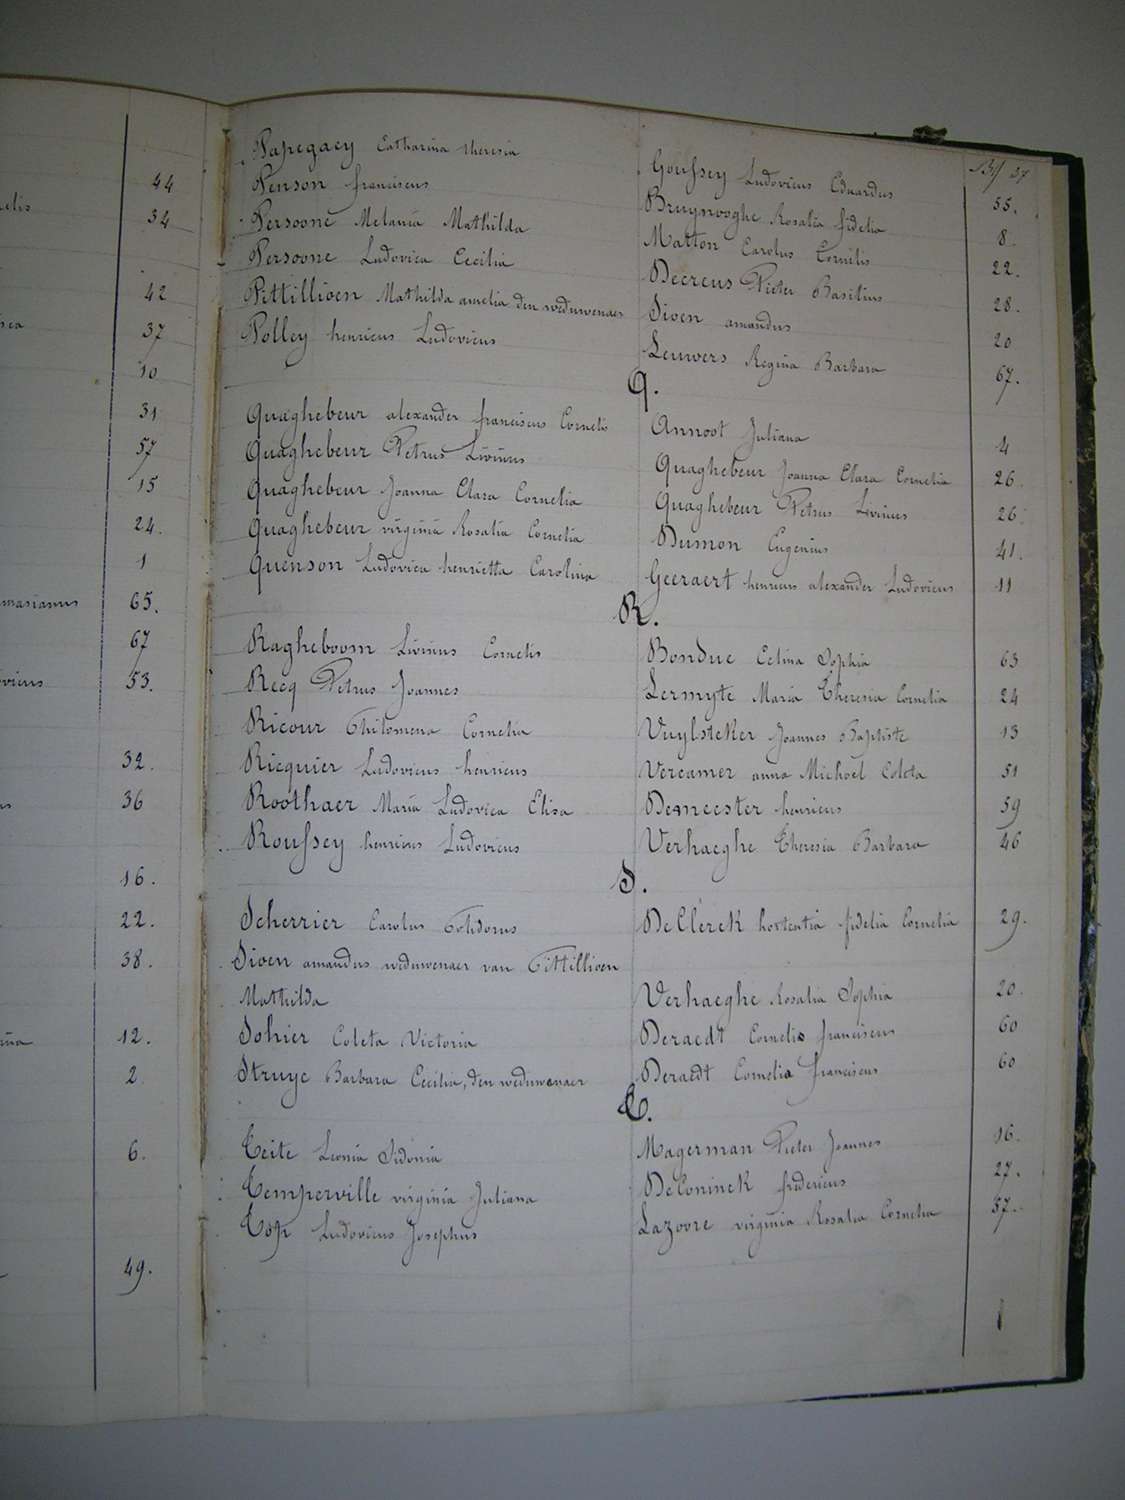 44
34
42
37
10
31
57
15
24.
1
65.
67
53.
32.
36
16.
22.
38.
12.
2
6.
49.
Papegaey Catharina theresia Goussey Ludovicus Eduardus 55.
Penson franciscus Bruynooghe Rosalia fidelia 8.
Persoone Melania Mathilda Matton Carolus Cornilis 22.
Persoone Ludovica Cecilia Decreus Pieter Basilius 28.
Pittillioen Mathilda amelia den weduwenaer Sioen amandus 20
Polley henricus Ludovicus Leuwers Regina Barbara 67.
Q.
Quaghebeur alexander franciscus Cornelis Annoot Juliana 4
Quaghebeur Petrus Livinus Quaghebeur Joanna Clara Cornelia 26.
Quaghebeur Joanna Clara Cornelia Quaghebeur Petrus Livinus 26.
Quaghebeur virginia Rosalia Cornelia Dumon Eugenius 41.
Quenson Ludovica henrietta Carolina Geeraert henricus alexander Ludovicus 11
R.
Ragheboom Livinus Cornelis Bonduc Celina Sophia 63
Recq Petrus Joannes Lermyte Maria Theresia Cornelia 24
Ricour Philomena Cornelia Vuylsteker Joannes Baptiste 13
Ricquier Ludovicus henricus Vercamer anna Michoel Coleta 51
Roothaer Maria Ludovica Elisa Demeester henricus 59
Roussey henricus Ludovicus Verhaeghe Theresia Barbara 46
S.
Scherrier Carolus DeClerck hortentia fidelia Cornelia 29.
Sioen amandus weduwenaer van Pittillioen
Mathilda Verhaeghe Rosalia Sophia 20.
Sohier Coleta Victoria Deraedt Cornelis franciscus 60
Struye Barbara Cecilia, den weduwenaer Deraedt Cornelis franciscus 60
T.
Teite Leonia Sidonia Magerman Pieter Joannes 16.
Temperville virginia Juliana DeConinck fredericus 27.
Top Ludovicus Josephus Lazoore virginia Rosalia Cornelia 57.